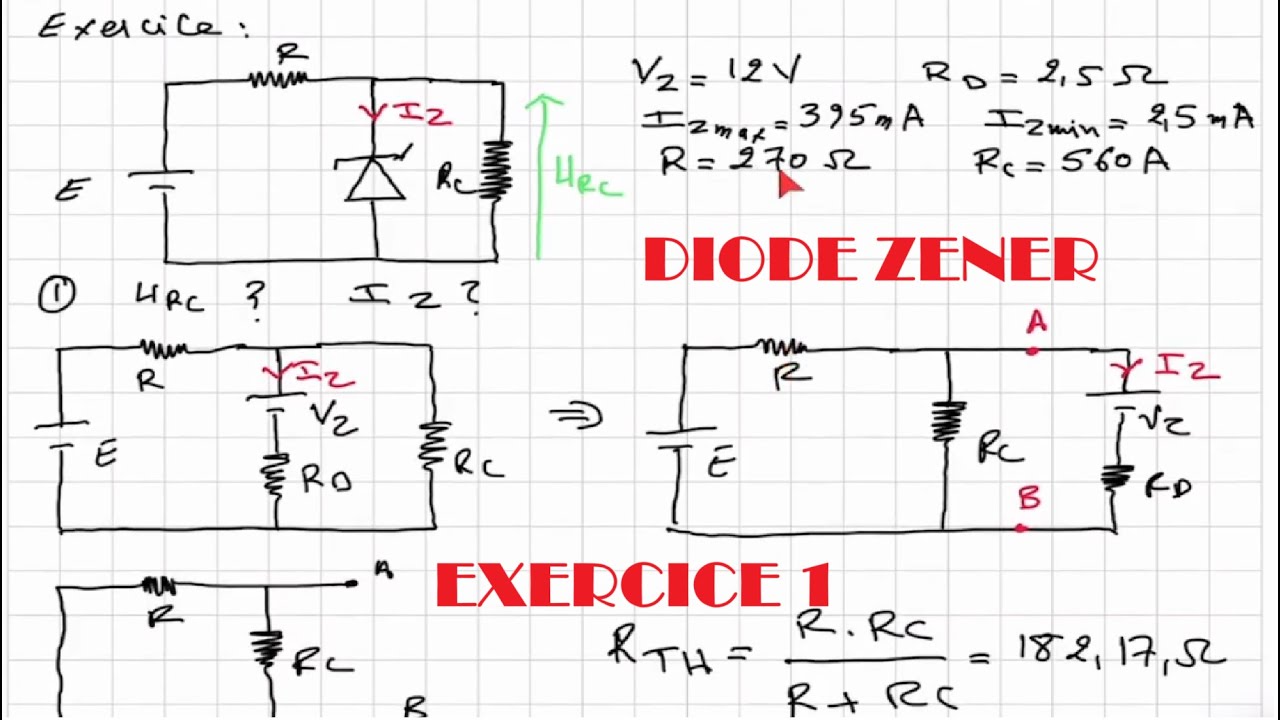 Exercice :
R
IZ
E
RC
URC
VZ = 12V RD = 2,5 Ω
IZmax = 395mA IZmin = 2,5mA
R = 270 Ω RC = 560 A
DIODE ZENER
① URC ? IZ ?
R
IZ
VZ
E
RD
RC
⇒
A
R
IZ
VZ
E
RC
RD
B
EXERCICE 1
A
R
RC
B
RTH = R . RC / R + RC = 182,17,Ω